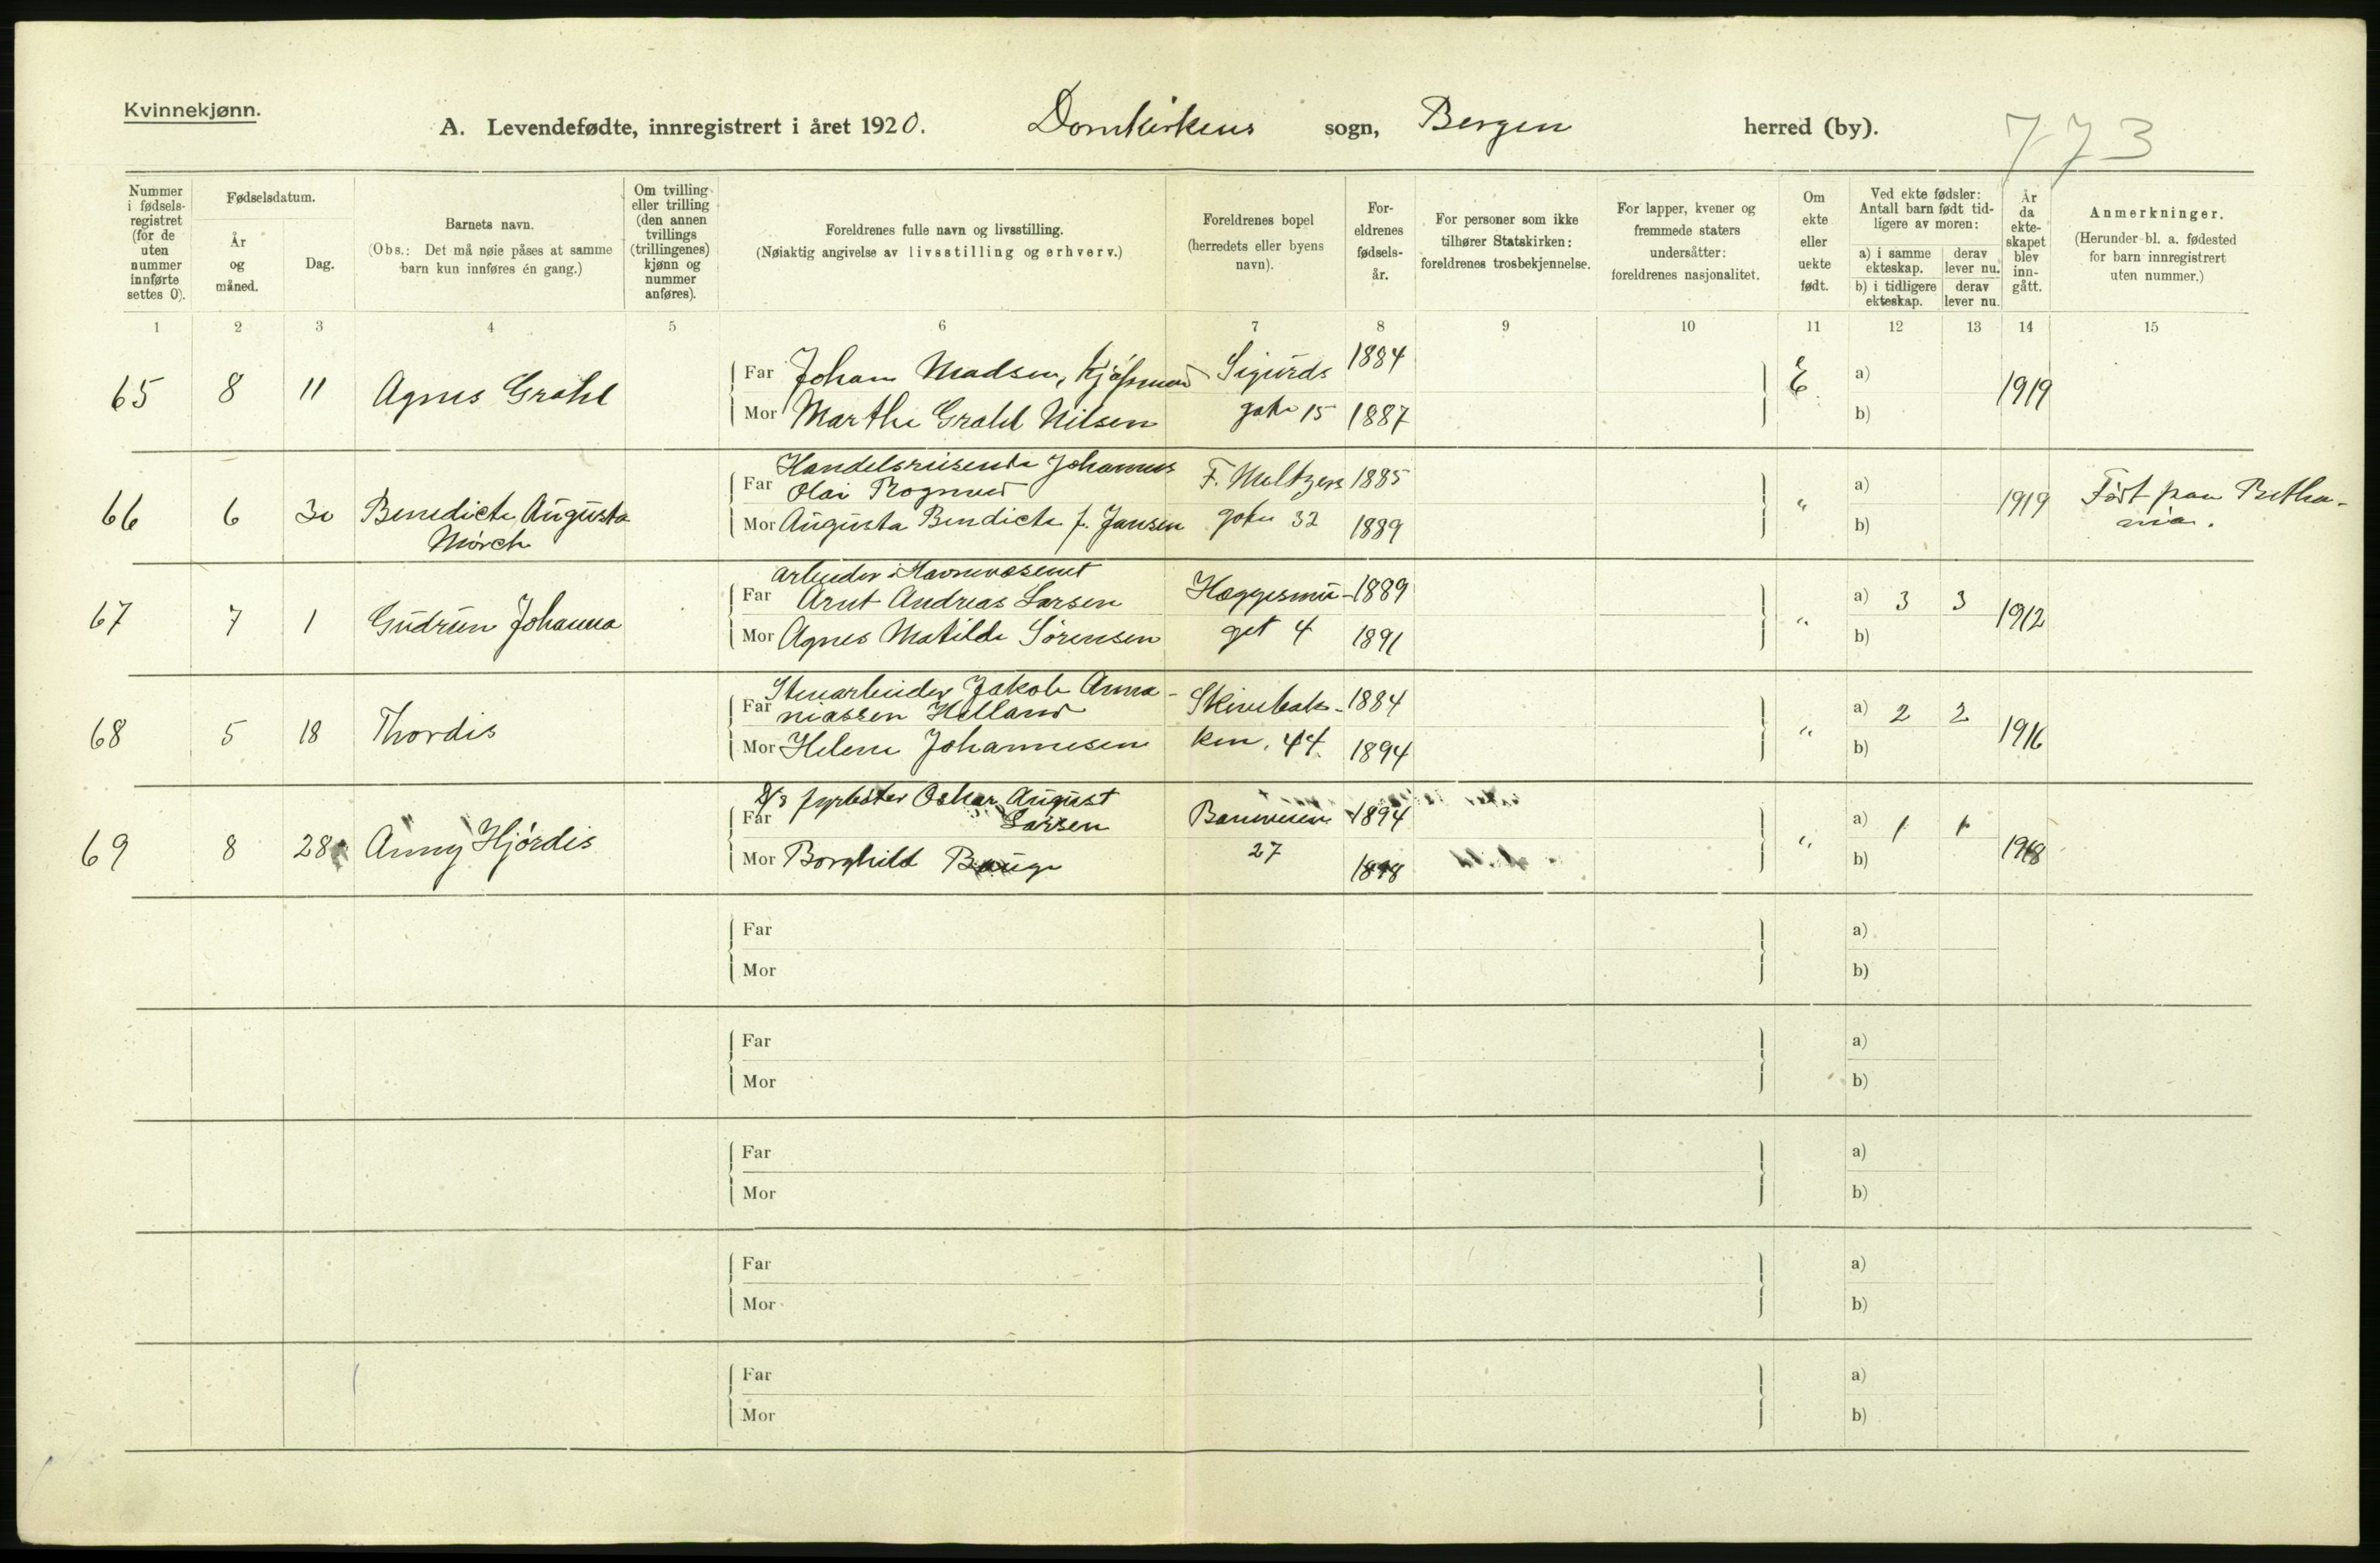 Kvinnekjønn.
A. Levendefødte, innregistrert i året 1920. Domkirkens sogn, Bergen herred (by).
773
Nummer i fødsels-registret (for de uten nummer innførte settes 0).
Fødselsdatum.
År og måned.
Dag.
Barnets navn.
(Obs.: Det må nøie påses at samme barn kun innføres én gang.)
Om tvilling eller trilling (den annen tvillings (trillingenes) kjønn og nummer anføres).
Foreldrenes fulle navn og livsstilling.
(Nøiaktig angivelse av livsstilling og erhverv.)
Foreldrenes bopel (herredets eller byens navn).
For-eldrenes fødsels-år.
For personer som ikke tilhører Statskirken: foreldrenes trosbekjennelse.
For lapper, kvener og fremmede staters undersåtter: foreldrenes nasjonalitet.
Om ekte eller uekte født.
Ved ekte fødsler: Antall barn født tid-ligere av moren:
a) i samme ekteskap. derav lever nu.
b) i tidligere ekteskap. derav lever nu.
År da ekte-skapet blev inn-gått.
Anmerkninger.
(Herunder bl. a. fødested for barn innregistrert uten nummer.)
1 2 3 4 5 6 7 8 9 10 11 12 13 14 15
65 8 11 Agnes Grahl
Far Johan Madsen, Kjøpmand Sigurds 1884 E a) 1919
Mor Marthe Grahl Nilsen gate 15 1887 b)
Handelsreisende Johannes
66 6 30 Benedicte Augusta
Mørch
Far Olai Rognved F. Meltzers 1885 " a) 1919 Født paa Betha-
Mor Augusta Bendicte f. Jansen gate 32 1889 b) nia.
arbeider i Havnevæsenet
67 7 1 Gudrun Johanna
Far Arnt Andreas Larsen Hæggesmu- 1889 " a) 3 3 1912
Mor Agnes Matilde Sørensen get 4 1891 b)
Stenarbeider Jakob Anna-
68 5 18 Thordis
Far niassen Helland Skivebak- 1884 " a) 2 2 1916
Mor Helene Johannesen ken, 44. 1894 b)
D/s fyrbøter Oskar August
69 8 28 Anny Hjørdis
Far Larsen Baneveien 1894 " a) 1 1 1918
Mor Borghild Bauge 27 1898 b)
Far a)
Mor b)
Far a)
Mor b)
Far a)
Mor b)
Far a)
Mor b)
Far a)
Mor b)